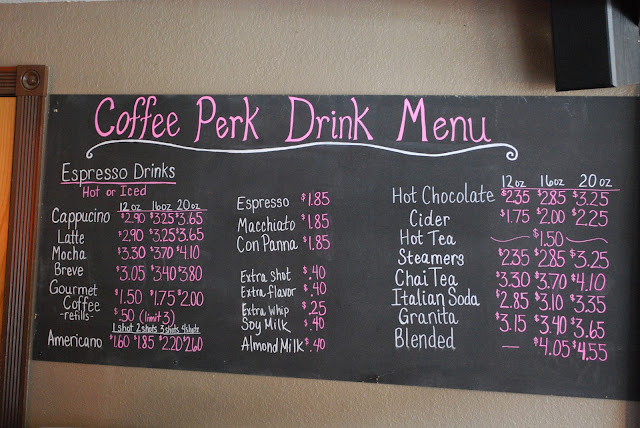 Coffee Perk Drink Menu
Espresso Drinks
Hot or Iced
12 oz 16 oz 20 oz
Cappucino $2.90 $3.25 $3.65
Latte $2.90 $3.25 $3.65
Mocha $3.30 $3.70 $4.10
Breve $3.05 $3.40 $3.80
Gourmet
Coffee $1.50 $1.75 $2.00
-refills- $.50 (limit 3)
1 shot 2 shots 3 shots 4 shots
Americano $1.60 $1.85 $2.20 $2.60
Espresso $1.85
Macchiato $1.85
Con Panna $1.85
Extra shot $.40
Extra flavor $.40
Extra whip $.25
Soy Milk $.40
Almond Milk $.40
12 oz 16 oz 20 oz
Hot Chocolate $2.35 $2.85 $3.25
Cider $1.75 $2.00 $2.25
Hot Tea $1.50
Steamers $2.35 $2.85 $3.25
Chai Tea $3.30 $3.70 $4.10
Italian Soda $2.85 $3.10 $3.35
Granita $3.15 $3.40 $3.65
Blended — $4.05 $4.55